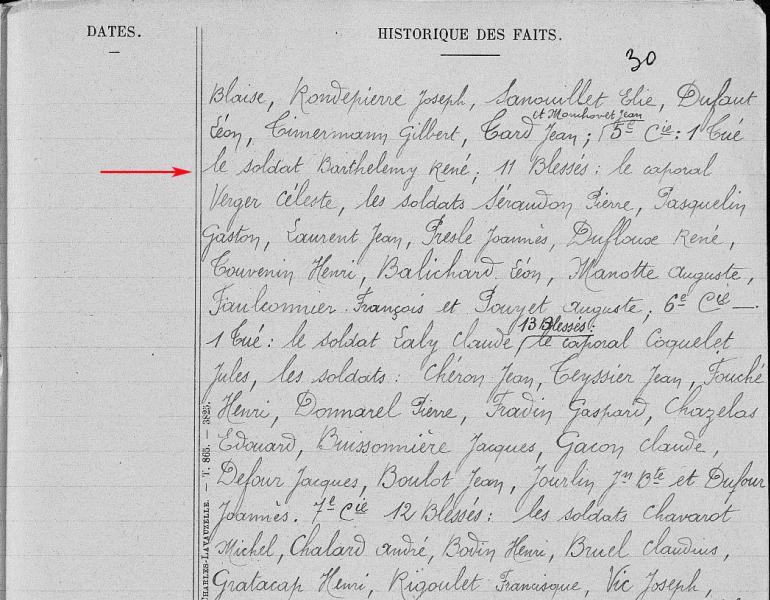 DATES.
HISTORIQUE DES FAITS.
30
Blaise, Rondepierre Joseph, Sanouillet Elie, Dufaut
et Monchovet Jean
Léon, Timermann Gilbert, Tard Jean; 5e Cie: 1 Tué
le soldat Barthelemy René; 11 Blessés: le caporal
Verger Céleste, les soldats Séraudon Pierre, Pasquelin
Gaston, Laurent Jean, Presle Joannès, Dufloux René,
Touvenin Henri, Balichard Léon, Manotte Auguste,
Faulconnier François et Pouyet Auguste; 6e Cie —.
13 Blessés:
1 Tué: le soldat Laly Claude le caporal Coquelet
Jules, les soldats: Chéron Jean, Teyssier Jean, Fouché
Henri, Donnarel Pierre, Fradin Gaspard, Chazelas
Edouard, Buissonnière Jacques, Gacon Claude,
Defour Jacques, Boulot Jean, Jourlin Jn Bte et Dufour
Joannès. 7e Cie 12 Blessés: les soldats Chavarot
Michel, Chalard André, Bodin Henri, Bruel Claudius,
Gratacap Henri, Rigoulet Francisque, Vic Joseph,
CHARLES-LAVAUZELLE. — T. 865. — 3825.